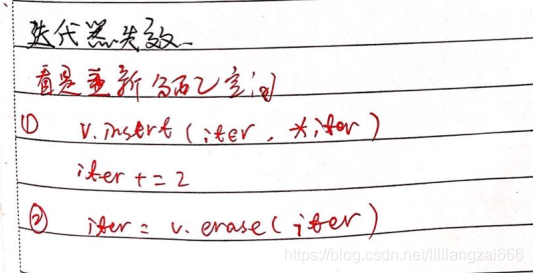 迭代器失效
看是重新分配空间
① v.insert(iter, *iter)
iter += 2
② iter = v.erase(iter)
https://blog.csdn.net/llliangzai666